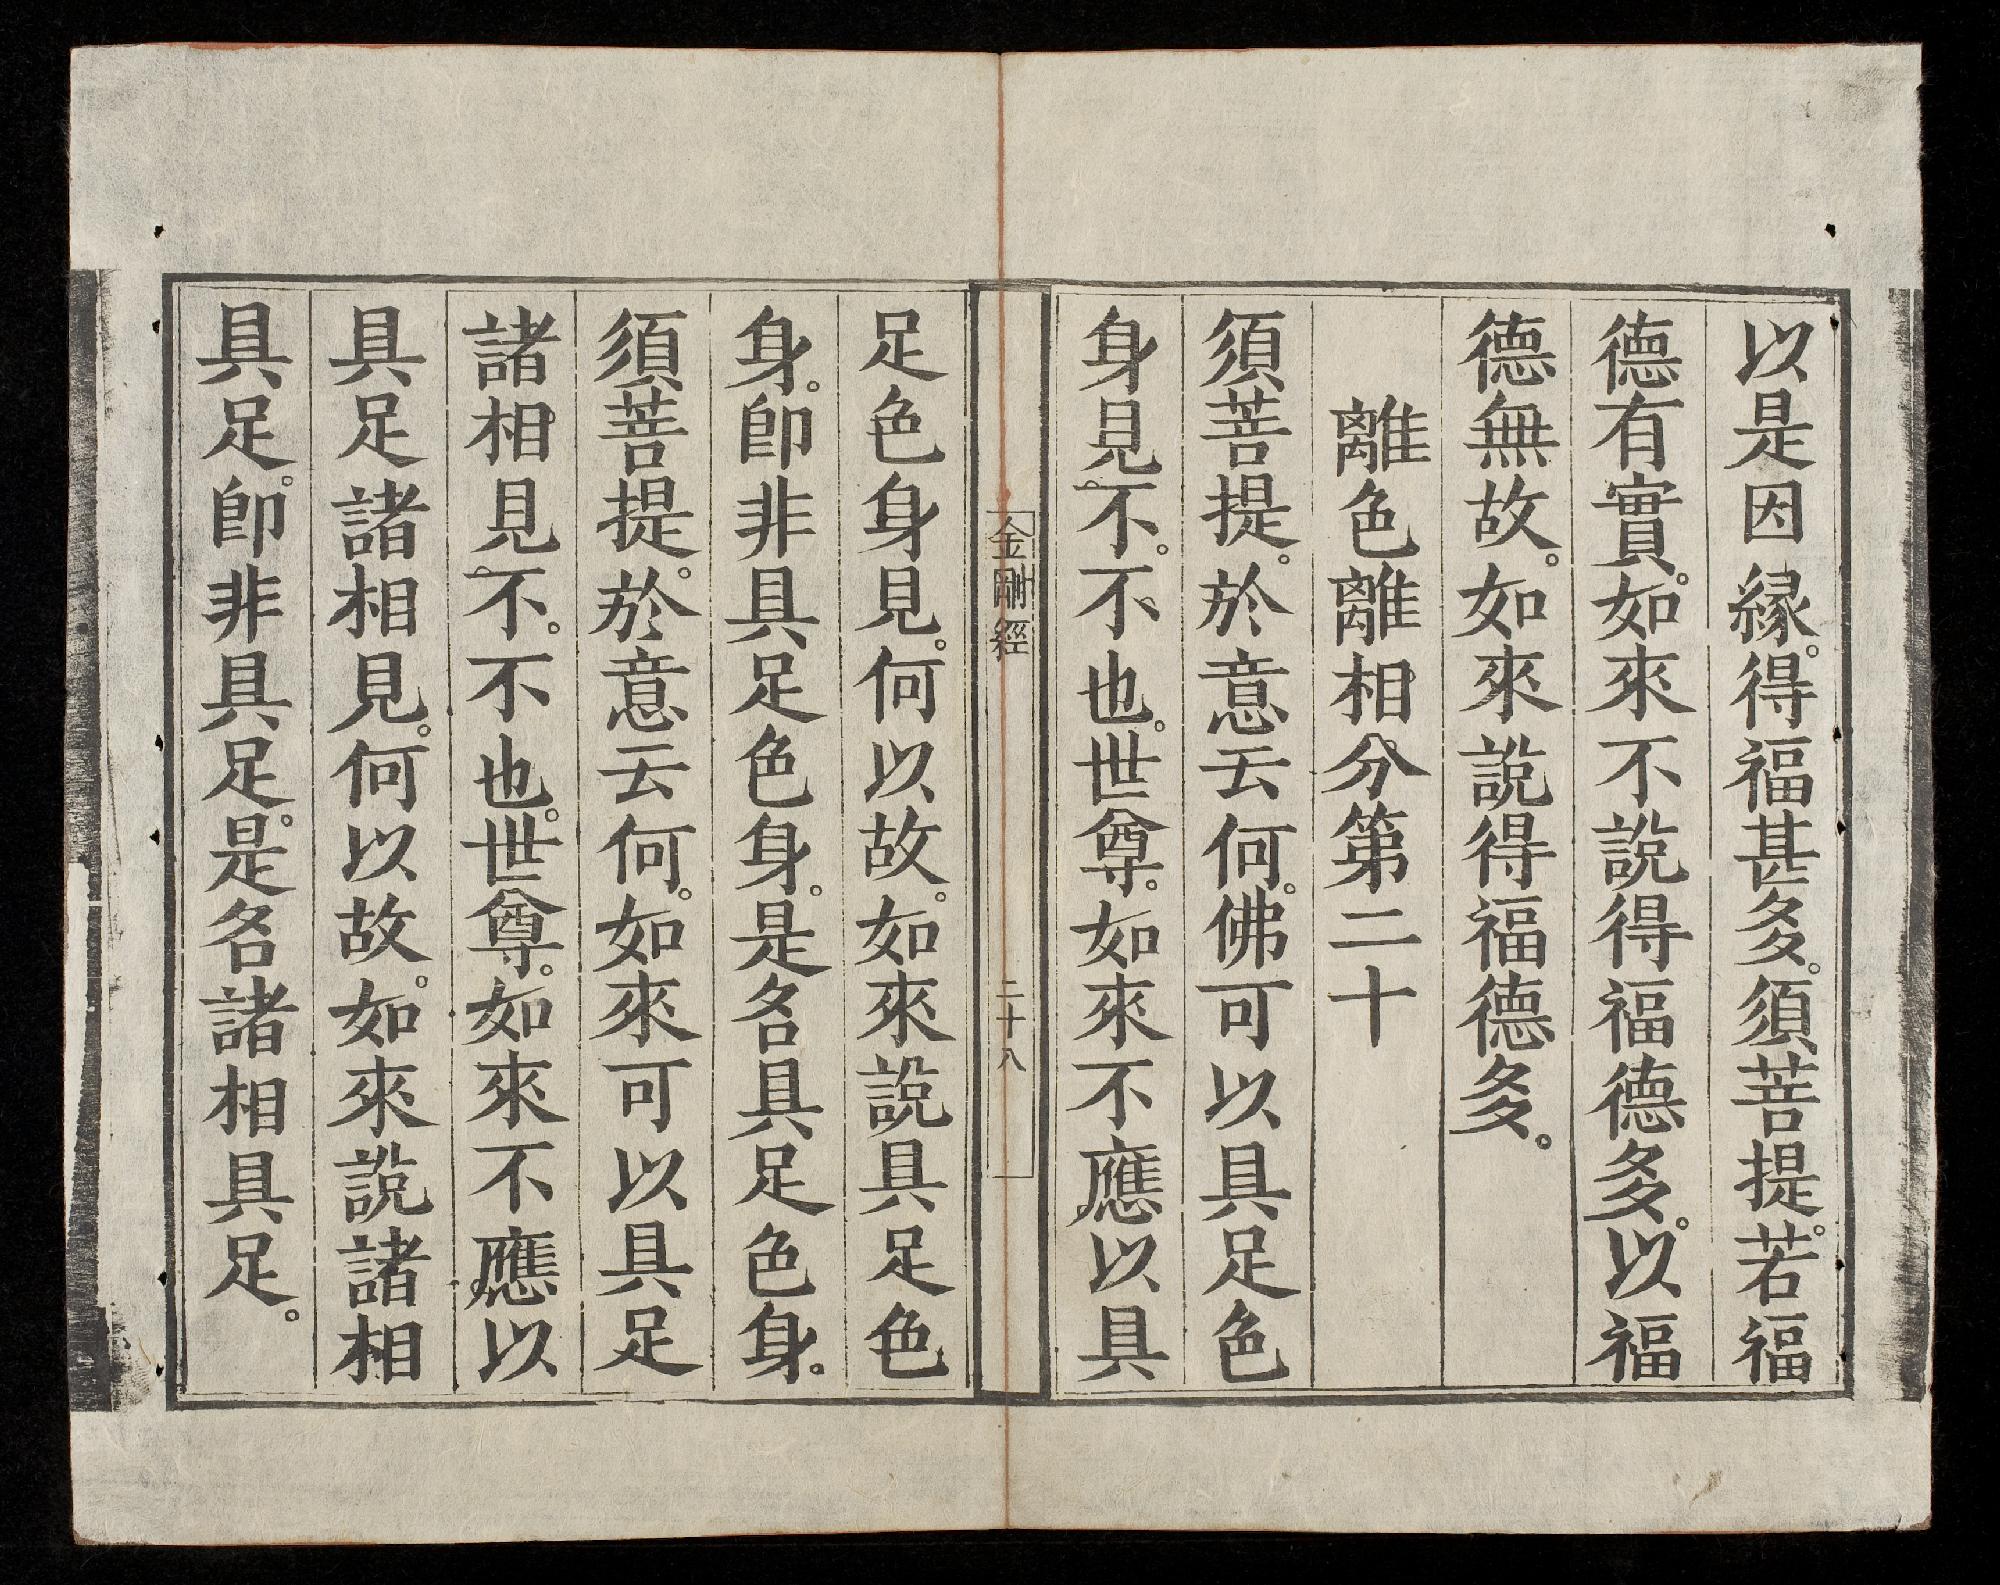 以是因緣。得福甚多。須菩提。若福
德有實。如來不說得福德多。以福
德無故。如來說得福德多。
離色離相分第二十
須菩提。於意云何。佛可以具足色
身見。不。不也。世尊。如來不應以具
金剛經
二十八
足色身見。何以故。如來說具足色
身。卽非具足色身。是名具足色身。
須菩提。於意云何。如來可以具足
諸相見。不。不也。世尊。如來不應以
具足諸相見。何以故。如來說諸相
具足。卽非具足。是名諸相具足。